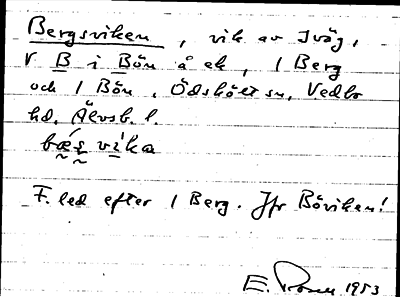 Bergsviken, vik av Ivåg,
V B i Bön å ek, 1 Berg
och 1 Bön, Ödskölt sn, Vedbo
hd, Älvsb. l.
bæ̰ʹs̰ vika
F. led efter 1 Berg. Jfr Böviken!
E. 1953